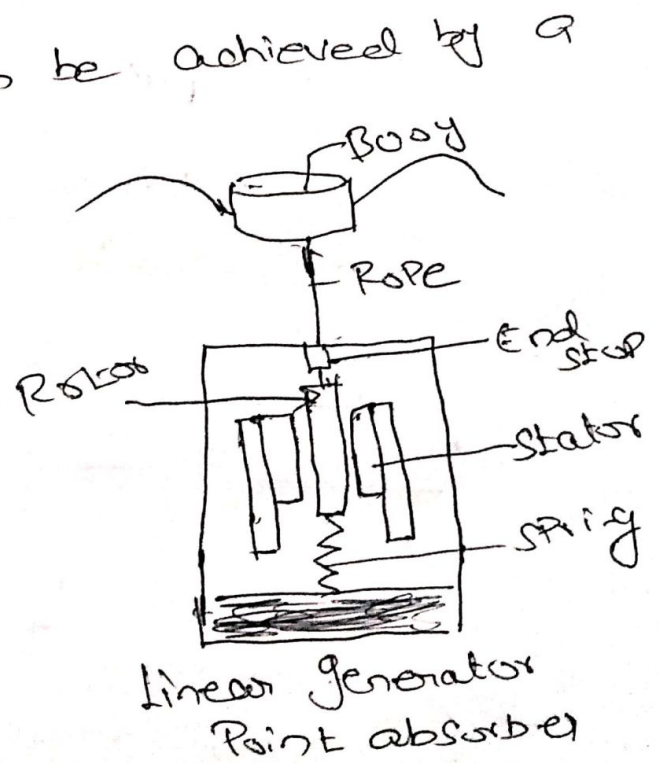 be achieved by a
Booy
Rope
End
Stop
Rotor
Stator
SPrig
Linear generator
Point absorber